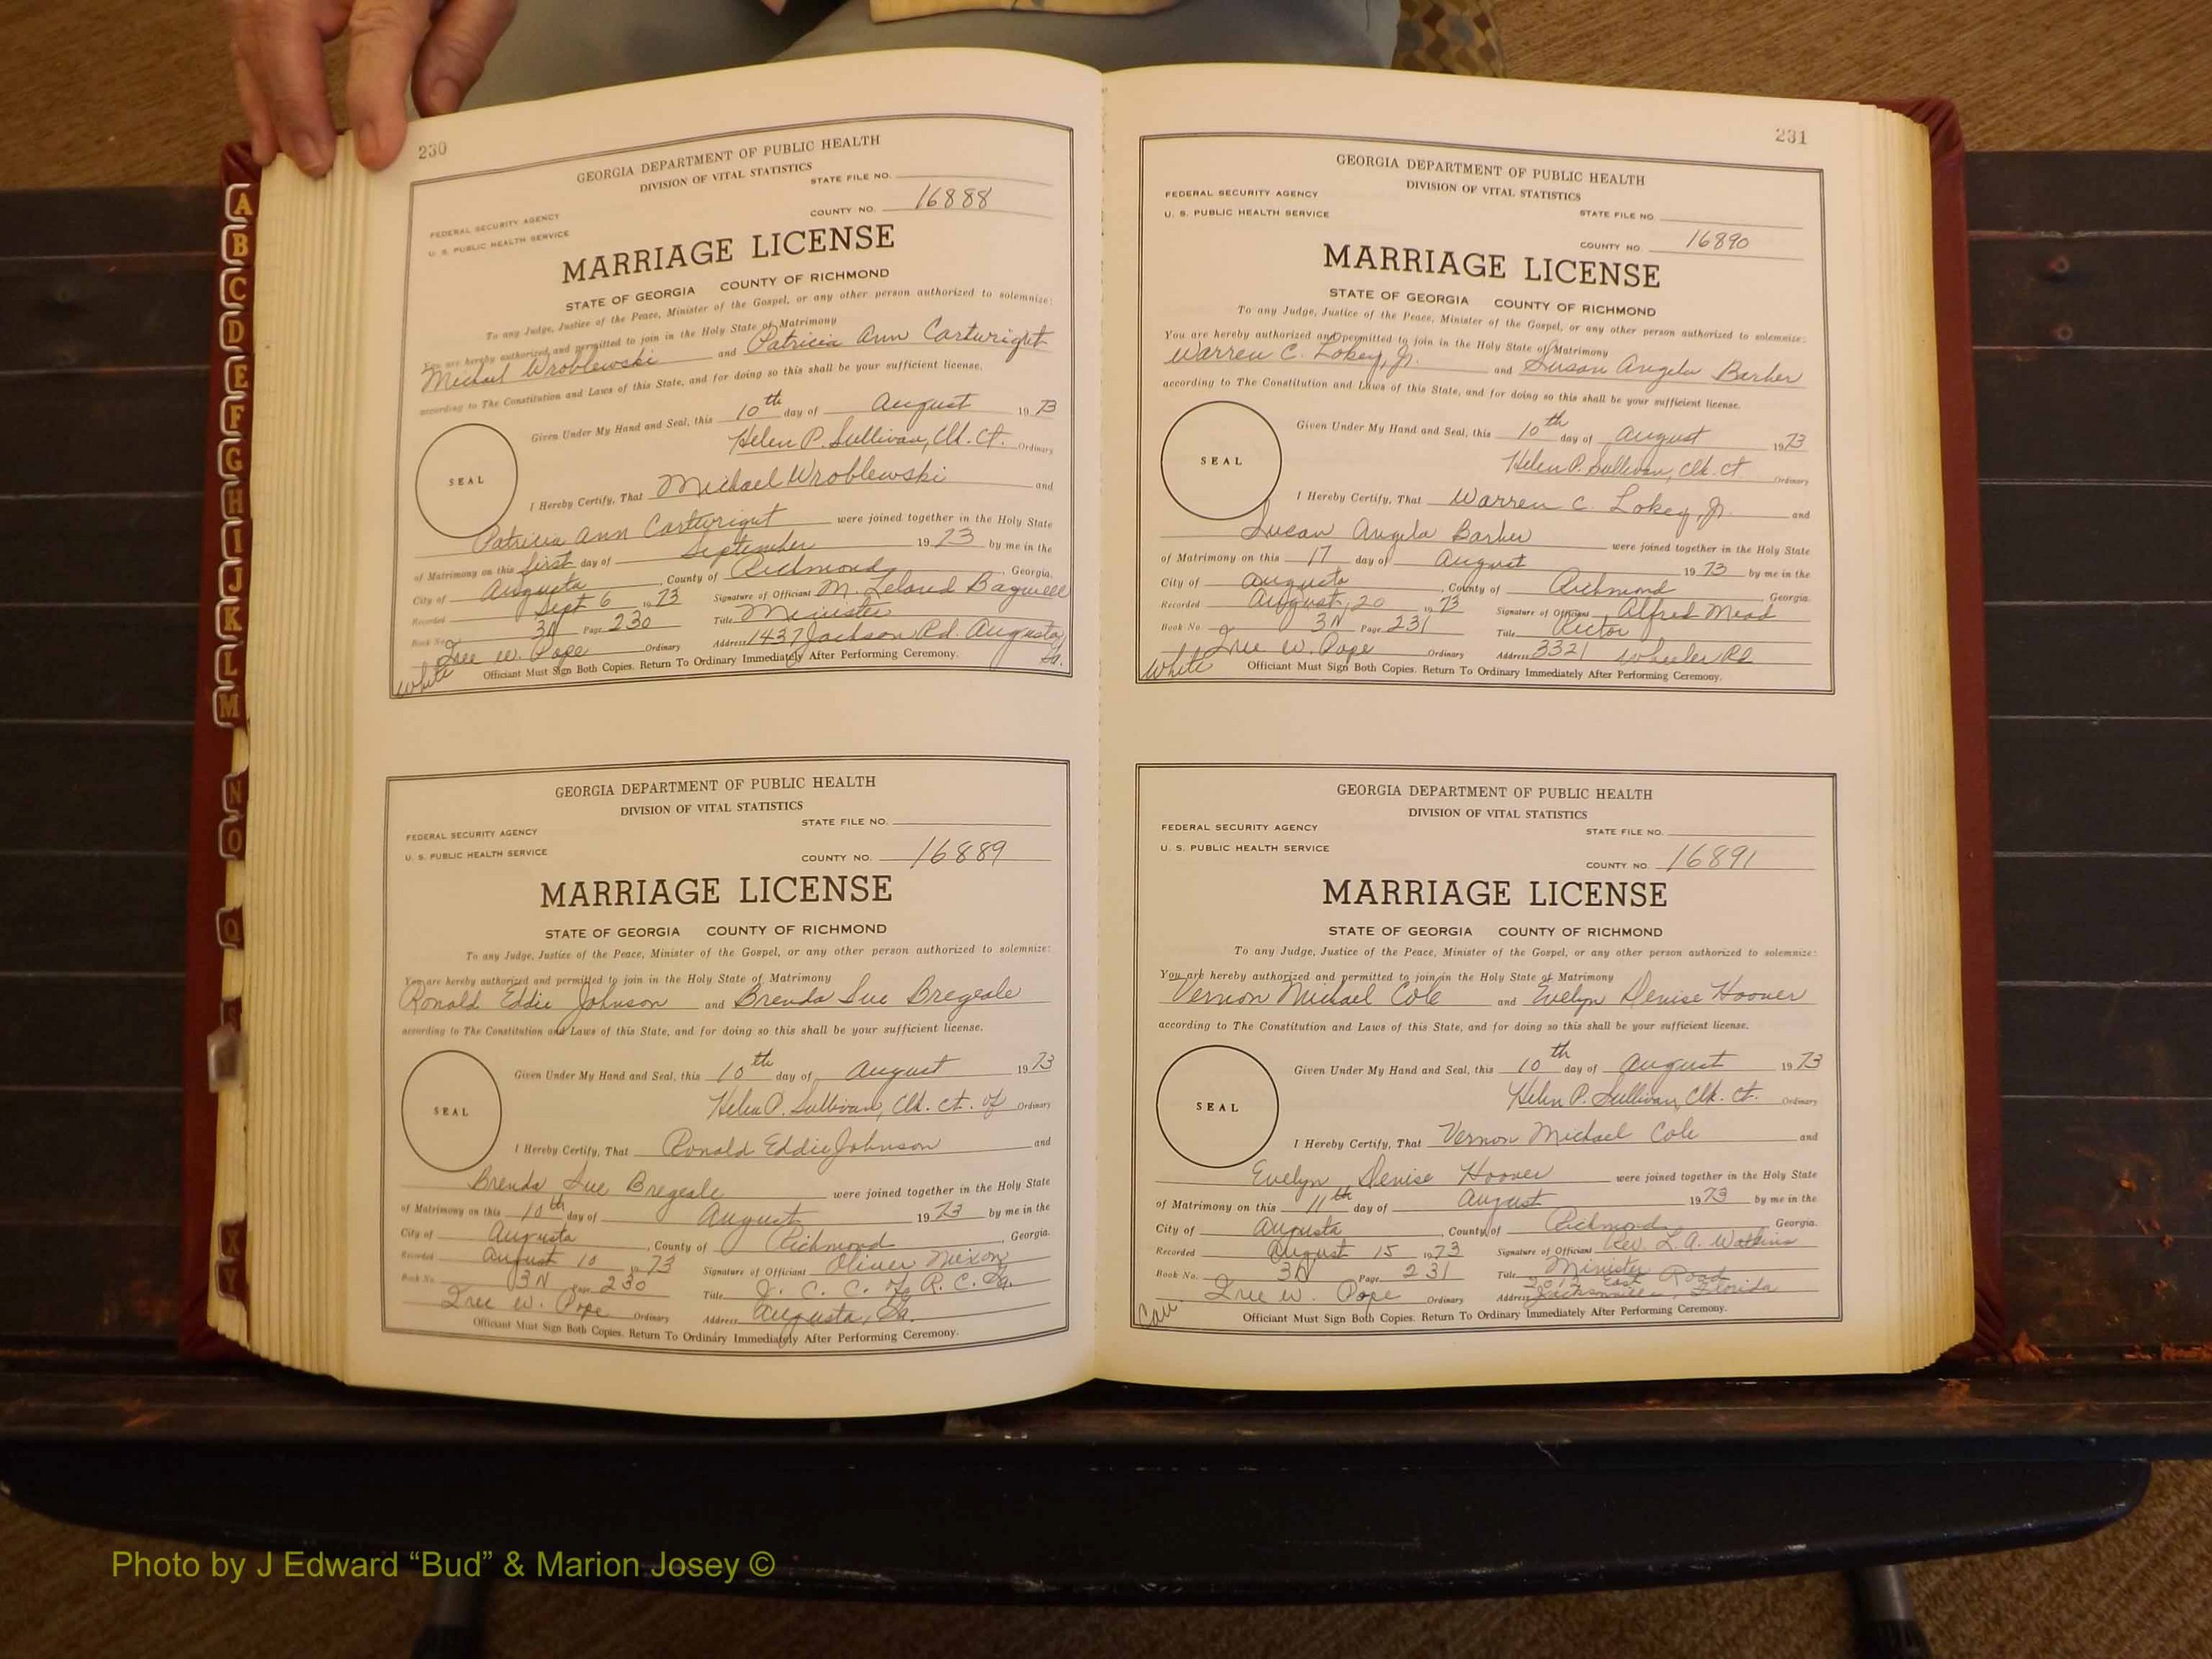 230
GEORGIA DEPARTMENT OF PUBLIC HEALTH
DIVISION OF VITAL STATISTICS
STATE FILE NO.
FEDERAL SECURITY AGENCY
U. S. PUBLIC HEALTH SERVICE
COUNTY NO. 16888
MARRIAGE LICENSE
STATE OF GEORGIA COUNTY OF RICHMOND
To any Judge, Justice of the Peace, Minister of the Gospel, or any other person authorized to solemnize:
You are hereby authorized and permitted to join in the Holy State of Matrimony
Michael Wroblewski and Patricia Ann Cartwright
according to The Constitution and Laws of this State, and for doing so this shall be your sufficient license.
Given Under My Hand and Seal, this 10th day of August 1973
Helen P. Sullivan, Clk. Ct. Ordinary
SEAL
I Hereby Certify, That Michael Wroblewski and
Patricia Ann Cartwright were joined together in the Holy State
of Matrimony on this first day of September 1973 by me in the
City of Augusta, County of Richmond, Georgia.
Recorded Sept 6 1973 Signature of Officiant M. Leland Bagwell
Book No. 3N Page 230 Title Minister
Iree W. Pope Ordinary Address 1437 Jackson Rd. Augusta, Ga.
White Officiant Must Sign Both Copies. Return To Ordinary Immediately After Performing Ceremony.
GEORGIA DEPARTMENT OF PUBLIC HEALTH
DIVISION OF VITAL STATISTICS
STATE FILE NO.
FEDERAL SECURITY AGENCY
U. S. PUBLIC HEALTH SERVICE
COUNTY NO. 16889
MARRIAGE LICENSE
STATE OF GEORGIA COUNTY OF RICHMOND
To any Judge, Justice of the Peace, Minister of the Gospel, or any other person authorized to solemnize:
You are hereby authorized and permitted to join in the Holy State of Matrimony
Ronald Eddie Johnson and Brenda Sue Bregeale
according to The Constitution and Laws of this State, and for doing so this shall be your sufficient license.
Given Under My Hand and Seal, this 10th day of August 1973
Helen P. Sullivan, Clk. ct. of Ordinary
SEAL
I Hereby Certify, That Ronald Eddie Johnson and
Brenda Sue Bregeale were joined together in the Holy State
of Matrimony on this 10th day of August 1973 by me in the
City of Augusta, County of Richmond, Georgia.
Recorded August 10 1973 Signature of Officiant Oliver Nixon
Book No. 3N Page 230 Title J. C. C. of R. C. Ga.
Iree W. Pope Ordinary Address Augusta, Ga.
Officiant Must Sign Both Copies. Return To Ordinary Immediately After Performing Ceremony.
231
GEORGIA DEPARTMENT OF PUBLIC HEALTH
DIVISION OF VITAL STATISTICS
FEDERAL SECURITY AGENCY
U. S. PUBLIC HEALTH SERVICE
STATE FILE NO.
COUNTY NO. 16890
MARRIAGE LICENSE
STATE OF GEORGIA COUNTY OF RICHMOND
To any Judge, Justice of the Peace, Minister of the Gospel, or any other person authorized to solemnize:
You are hereby authorized and permitted to join in the Holy State of Matrimony
Warren C. Lokey, Jr. and Susan Angela Barber
according to The Constitution and Laws of this State, and for doing so this shall be your sufficient license.
Given Under My Hand and Seal, this 10th day of August 1973
Helen P. Sullivan, Clk. ct Ordinary
SEAL
I Hereby Certify, That Warren C. Lokey, Jr. and
Susan Angela Barber were joined together in the Holy State
of Matrimony on this 17 day of August 1973 by me in the
City of Augusta, County of Richmond Georgia.
Recorded August, 20 1973 Signature of Officiant Alfred Mead
Book No. 3N Page 231 Title Rector
Iree W. Pope Ordinary Address 3321 Wheeler Rd
White Officiant Must Sign Both Copies. Return To Ordinary Immediately After Performing Ceremony.
GEORGIA DEPARTMENT OF PUBLIC HEALTH
DIVISION OF VITAL STATISTICS
FEDERAL SECURITY AGENCY
STATE FILE NO.
U. S. PUBLIC HEALTH SERVICE
COUNTY NO. 16891
MARRIAGE LICENSE
STATE OF GEORGIA COUNTY OF RICHMOND
To any Judge, Justice of the Peace, Minister of the Gospel, or any other person authorized to solemnize:
You are hereby authorized and permitted to join in the Holy State of Matrimony
Vernon Michael Cole and Evelyn Denise Hoover
according to The Constitution and Laws of this State, and for doing so this shall be your sufficient license.
Given Under My Hand and Seal, this 10th day of August 1973
Helen P. Sullivan, Clk. Ct. Ordinary
SEAL
I Hereby Certify, That Vernon Michael Cole and
Evelyn Denise Hoover were joined together in the Holy State
of Matrimony on this 11th day of August 1973 by me in the
City of Augusta, County of Richmond Georgia.
Recorded August 15 1973 Signature of Officiant Rev. L. A. Watkins
Book No. 3N Page 231 Title Minister
East Road
Iree W. Pope Ordinary Address Jacksonville, Florida
Officiant Must Sign Both Copies. Return To Ordinary Immediately After Performing Ceremony.
A
B
C
D
E
F
G
H
I
J
K
L
M
N
O
Q
S
X
Y
Photo by J Edward “Bud” & Marion Josey ©